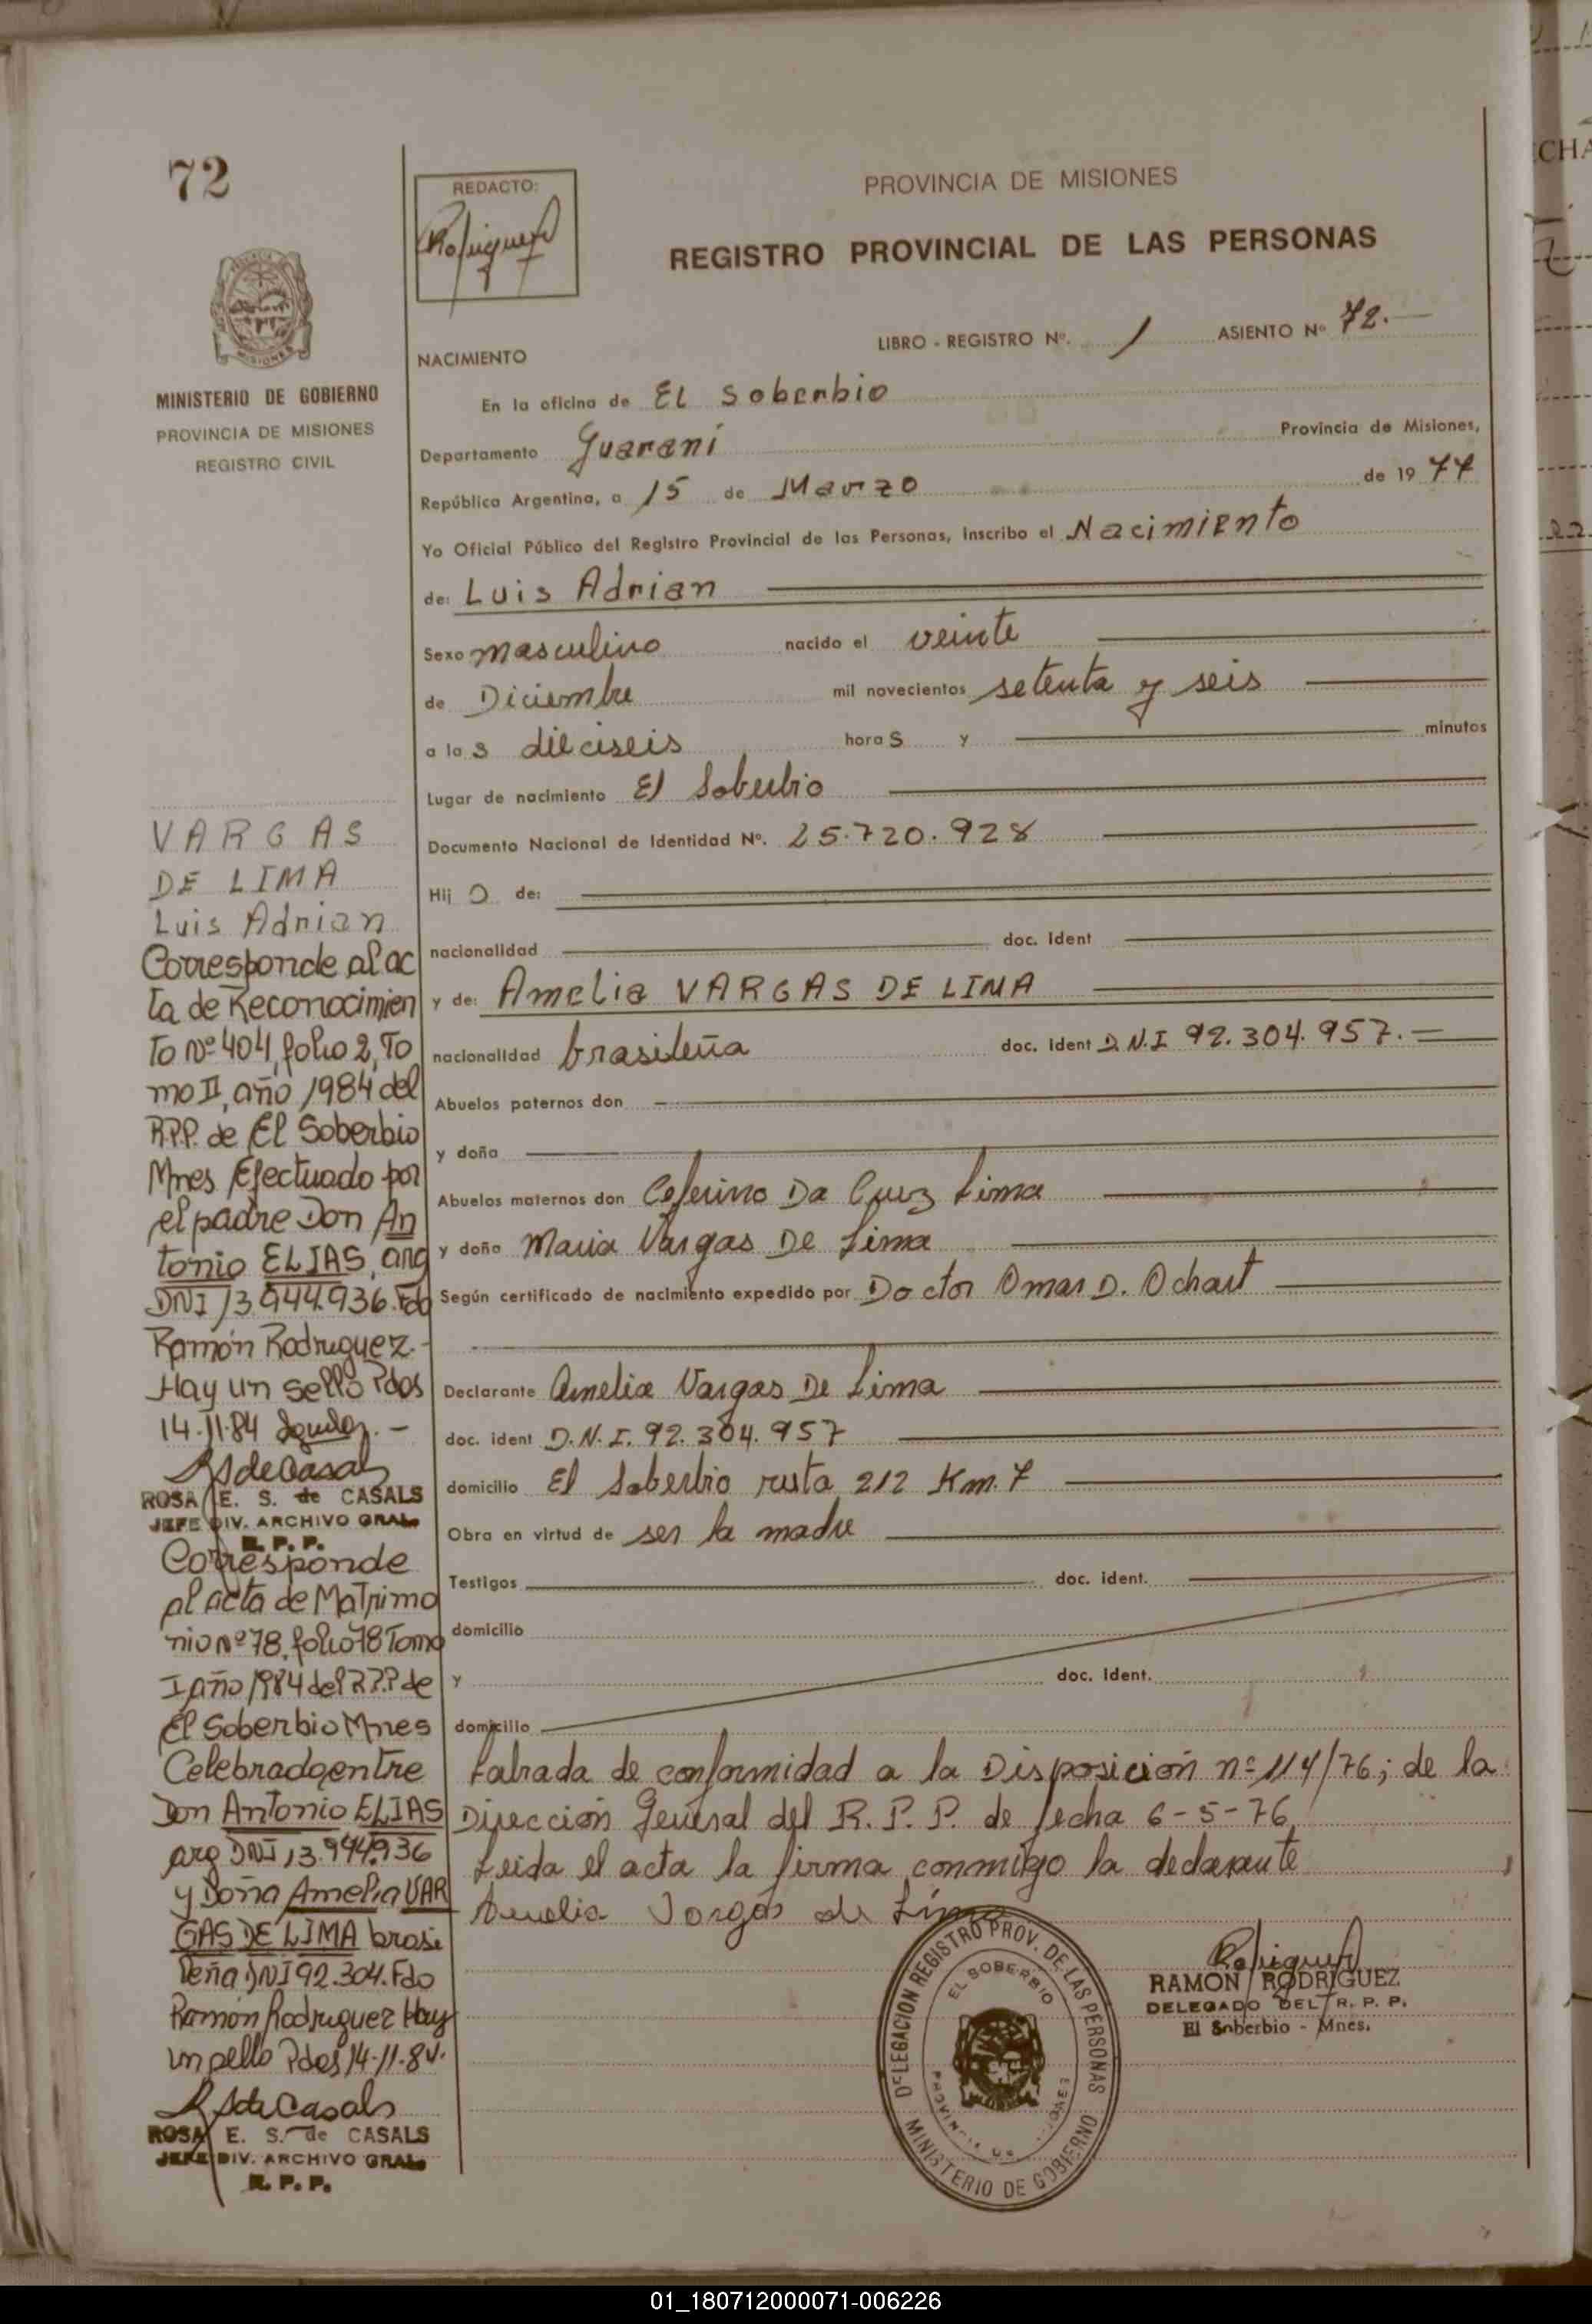 72
MINISTERIO DE GOBIERNO
PROVINCIA DE MISIONES
REGISTRO CIVIL
VARGAS
DE LIMA
Luis Adrian
Corresponde al ac
ta de Reconocimien
to Nº 404, folio 2, To
mo II, año 1984 del
R.P.P. de El Soberbio
Mnes Efectuado por
el padre Don An
tonio ELIAS, arg
DNI 13.944.936. Fdo
Ramón Rodriguez.-
Hay un sello Pdas
14.11.84
ROSA E. S. de CASALS
JEFE DIV. ARCHIVO GRAL.
R. P. P.
Corresponde
al acta de Matrimo
nio Nº 78, folio 78 Tomo
I año 1984 del R.P.P. de
El Soberbio Mnes
Celebrado entre
Don Antonio ELIAS
arg DNI 13.944.936
y Doña Amelia VAR
GAS DE LIMA brasi
leña DNI 92.304. Fdo
Ramón Rodriguez Hay
un sello Pdas 14.11.84.
ROSA E. S. de CASALS
JEFE DIV. ARCHIVO GRAL.
R. P. P.
REDACTO:
PROVINCIA DE MISIONES
REGISTRO PROVINCIAL DE LAS PERSONAS
LIBRO - REGISTRO Nº. 1 ASIENTO Nº 72.-
NACIMIENTO
En la oficina de El Soberbio
Departamento Guaraní Provincia de Misiones,
República Argentina, a 15 de Marzo de 1977
Yo Oficial Público del Registro Provincial de las Personas, inscribo el Nacimiento
de: Luis Adrian
Sexo masculino nacido el veinte
de Diciembre mil novecientos setenta y seis
a las dieciseis horas y minutos
Lugar de nacimiento El Soberbio
Documento Nacional de Identidad Nº. 25.720.928
Hijo de:
nacionalidad doc. ident
y de: Amelia VARGAS DE LIMA
nacionalidad brasileña doc. ident D.N.I 92.304.957.=
Abuelos paternos don
y doña
Abuelos maternos don Ceferino Da Cruz Lima
y doña Maria Vargas De Lima
Según certificado de nacimiento expedido por Doctor Omar D. Ochart
Declarante Amelia Vargas De Lima
doc. ident D.N.I. 92.304.957
domicilio El Soberbio ruta 212 Km. 7
Obra en virtud de ser la madre
Testigos doc. ident.
domicilio
y doc. ident.
domicilio
Labrada de conformidad a la Disposición nº 114/76; de la
Dirección General del R. P. P. de fecha 6-5-76
Leida el acta la firma conmigo la declarante
Amelia Vargas de Lima
DELEGACION REGISTRO PROV. DE LAS PERSONAS
EL SOBERBIO
MINISTERIO DE GOBIERNO
RAMON RODRIGUEZ
DELEGADO DEL R. P. P.
El Soberbio - Mnes.
01_180712000071-006226